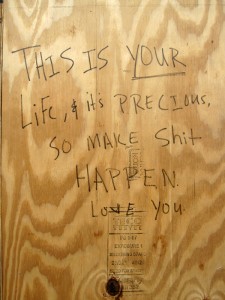 THIS IS YOUR
Life, & it's PRECIOUS,
SO MAKE Shit
HAPPEN.
LOVE YOU.